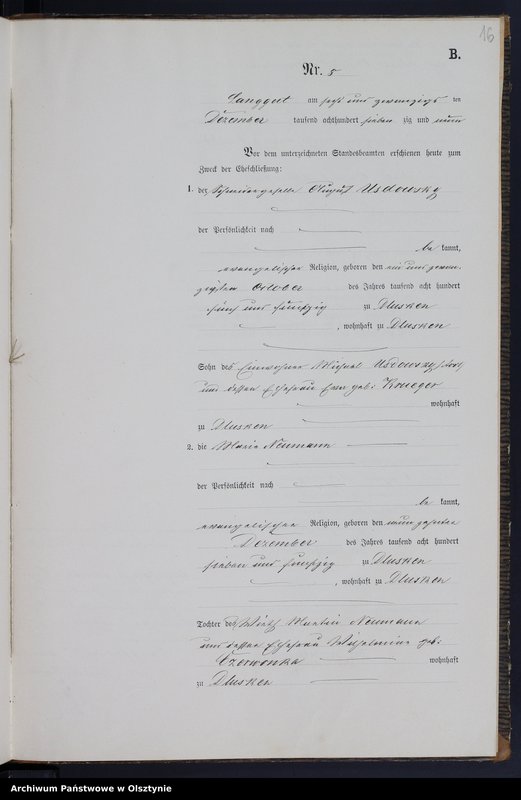 16
B.
Nr. 5
Langgut am sechs und zwanzigsten
Dezember tausend achthundert sieben zig und neun
Vor dem unterzeichneten Standesbeamten erschienen heute zum
Zweck der Eheschließung:
1. der August Usdowsky
der Persönlichkeit nach
be kannt,
evangelischer Religion, geboren den ein und zwan-
zigsten October des Jahres tausend acht hundert
fünf und fünfzig zu Dlusken
, wohnhaft zu Dlusken
Sohn des Einwohner Michael Usdowsky
und dessen Ehefrau geb: Krueger
wohnhaft
zu Dlusken
2. die Marie Neumann
der Persönlichkeit nach
be kannt,
evangelischer Religion, geboren den neun zehnten
Dezember des Jahres tausend acht hundert
sieben und fünfzig zu Dlusken
, wohnhaft zu Dlusken
Tochter des Wirth Martin Neumann
und dessen Ehefrau Wilhelmine geb:
Czerwonka wohnhaft
zu Dlusken
Archiwum Państwowe w Olsztynie